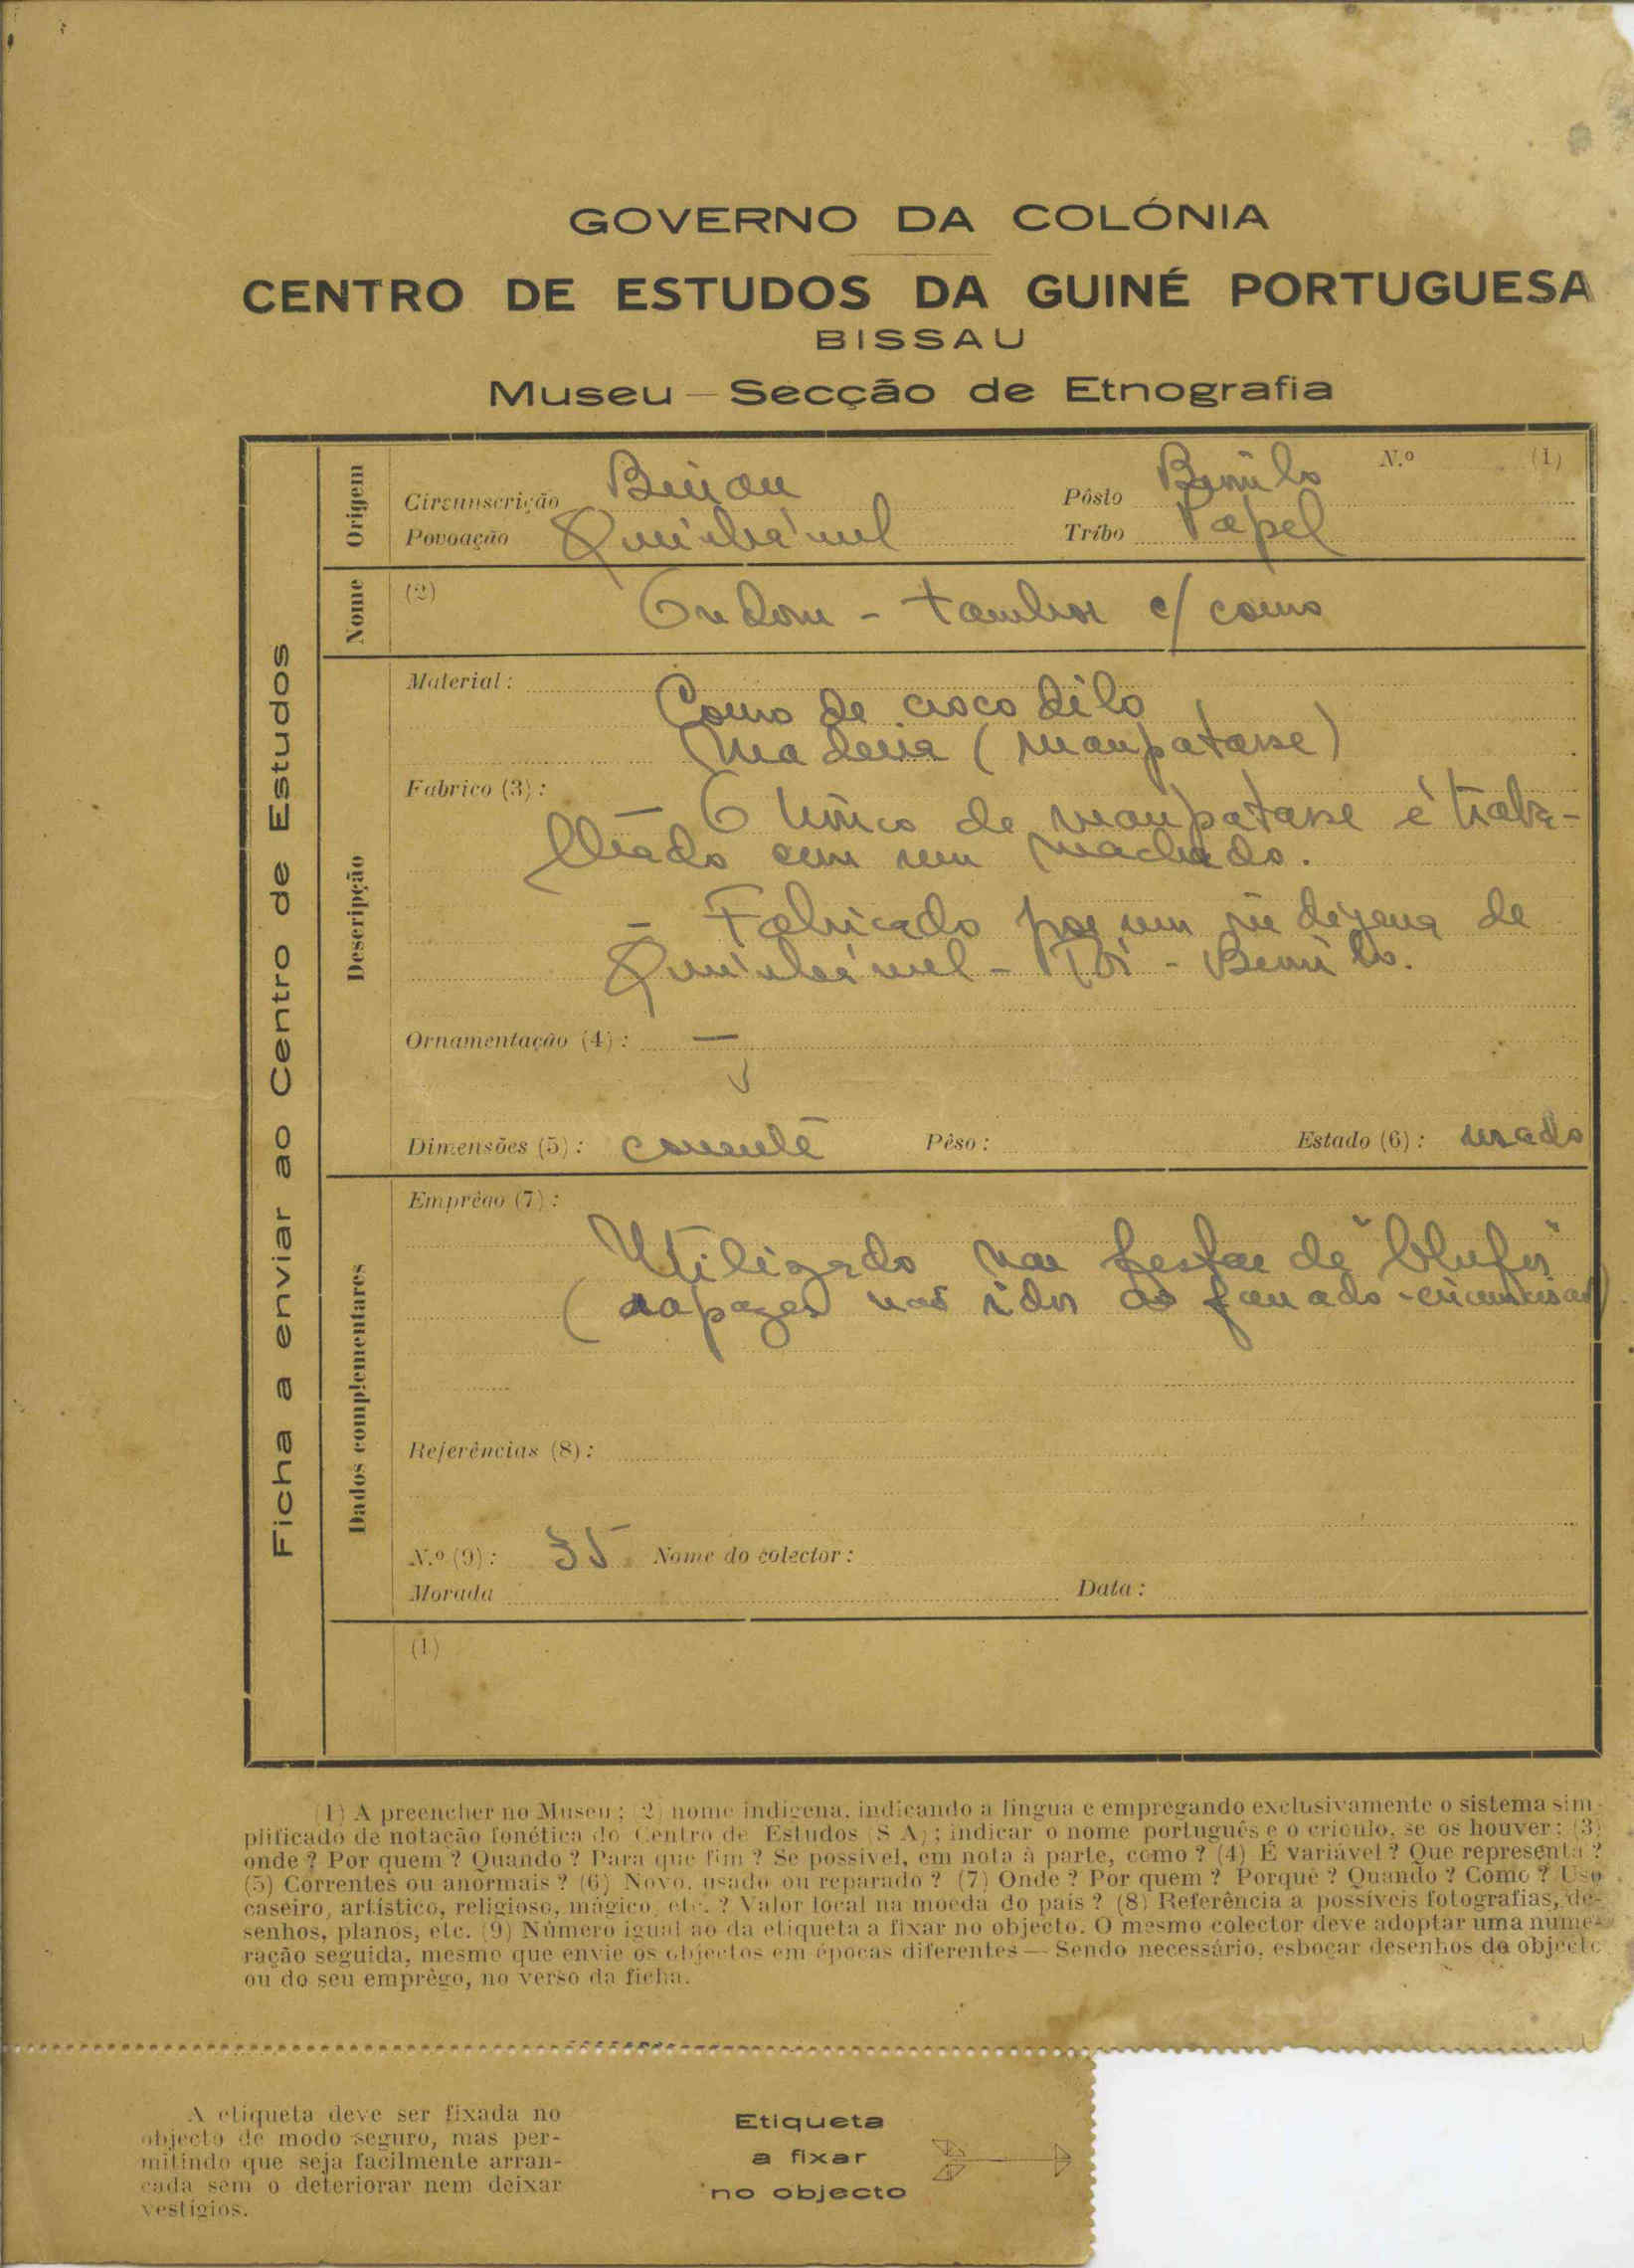 GOVERNO DA COLÓNIA
CENTRO DE ESTUDOS DA GUINÉ PORTUGUESA
BISSAU
Museu — Secção de Etnografia
Ficha a enviar ao Centro de Estudos
Origem
Circunscrição Bissau Pôsto N.º (1)
Povoação Quinháme​l Tribo Papel
Nome
(2) Ondom - tambor c/ couro
Descripção
Material: Couro de crocodilo
Madeira (manpatasse)
Fabrico (3): — O tronco de manpatasse é traba-
lhado com um machado.
— Fabricado por um indigena de
Quinhámel - - .
Ornamentação (4): —
Dimensões (5): corrente Pêso: Estado (6): usado
Dados complementares
Emprêgo (7):
Utilizado nas festas de "blufos"
(rapazes não idos ao fanado -
Referências (8):
N.º (9): 35 Nome do colector:
Morada Data:
(1)
(1) A preencher no Museu; (2) nome indígena, indicando a língua e empregando exclusivamente o sistema sim-
plificado de notação fonética do Centro de Estudos (S A); indicar o nome português e o crioulo, se os houver; (3)
onde? Por quem? Quando? Para que fim? Se possível, em nota à parte, como? (4) É variável? Que representa?
(5) Correntes ou anormais? (6) Novo, usado ou reparado? (7) Onde? Por quem? Porquê? Quando? Como? Uso
caseiro, artístico, religioso, mágico, etc.? Valor local na moeda do país? (8) Referência a possíveis fotografias, de-
senhos, planos, etc. (9) Número igual ao da etiqueta a fixar no objecto. O mesmo colector deve adoptar uma nume-
ração seguida, mesmo que envie os objectos em épocas diferentes — Sendo necessário, esboçar desenhos do objecto
ou do seu emprêgo, no verso da ficha.
A etiqueta deve ser fixada no
objecto de modo seguro, mas per-
mitindo que seja facilmente arran-
cada sem o deteriorar nem deixar
vestígios.
Etiqueta
a fixar
no objecto